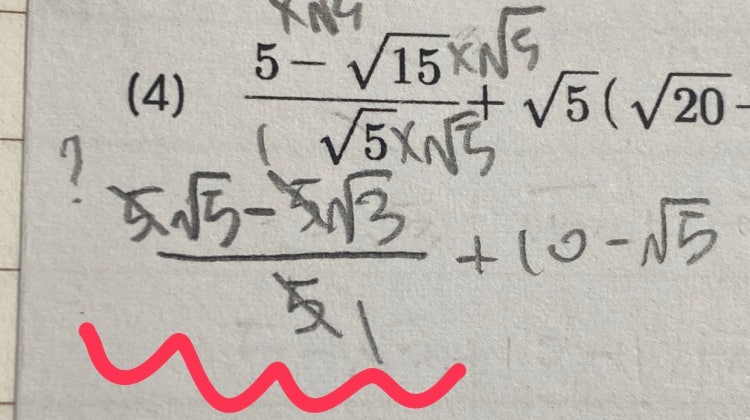 ×√5
(4) (5 − √15 ×√5)/(√5 ×√5) + √5(√20 −
? (5√5 − 5√3)/(5 1) + 10 − √5